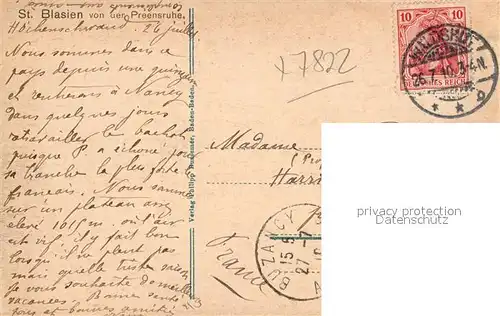 St. Blasien von der Preensruhe.
Höchenschwand 26 juillet
Nous sommes dans ce
pays depuis une quinzaine
et rentrerons à Nancy
dans quelques jours
retravailler le bachot
puisque P a échoué pour
sa tranche la plus forte
français. Nous sommes
sur un plateau assez
élevé 1015 m. où l'air
est vif; il y fait bon
lorsqu'il ne pleut pas
mais quelle triste saison
je vous souhaite de meilleures
vacances Bonne santé
tous et bonnes amitiés
Verlag Philipp Bussemer, Baden-Baden.
x 7822
10 10
DEUTSCHES REICH
WALDSHUT
26.7. 2-4N.
* * b
Madame
Harri
France
BUZANCY
15
27 -7
photographic
protection watermark